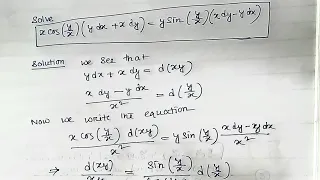 Solve
x cos(y/x) (y dx + x dy) = y sin(y/x) (x dy - y dx)
Solution we see that
y dx + x dy = d(xy)
x dy - y dx / x² = d(y/x)
Now we write the equation
x cos(y/x) d(xy) / x² = y sin(y/x) x dy - y dx / x²
⇒ d(xy) = sin(y/x) d(y/x)